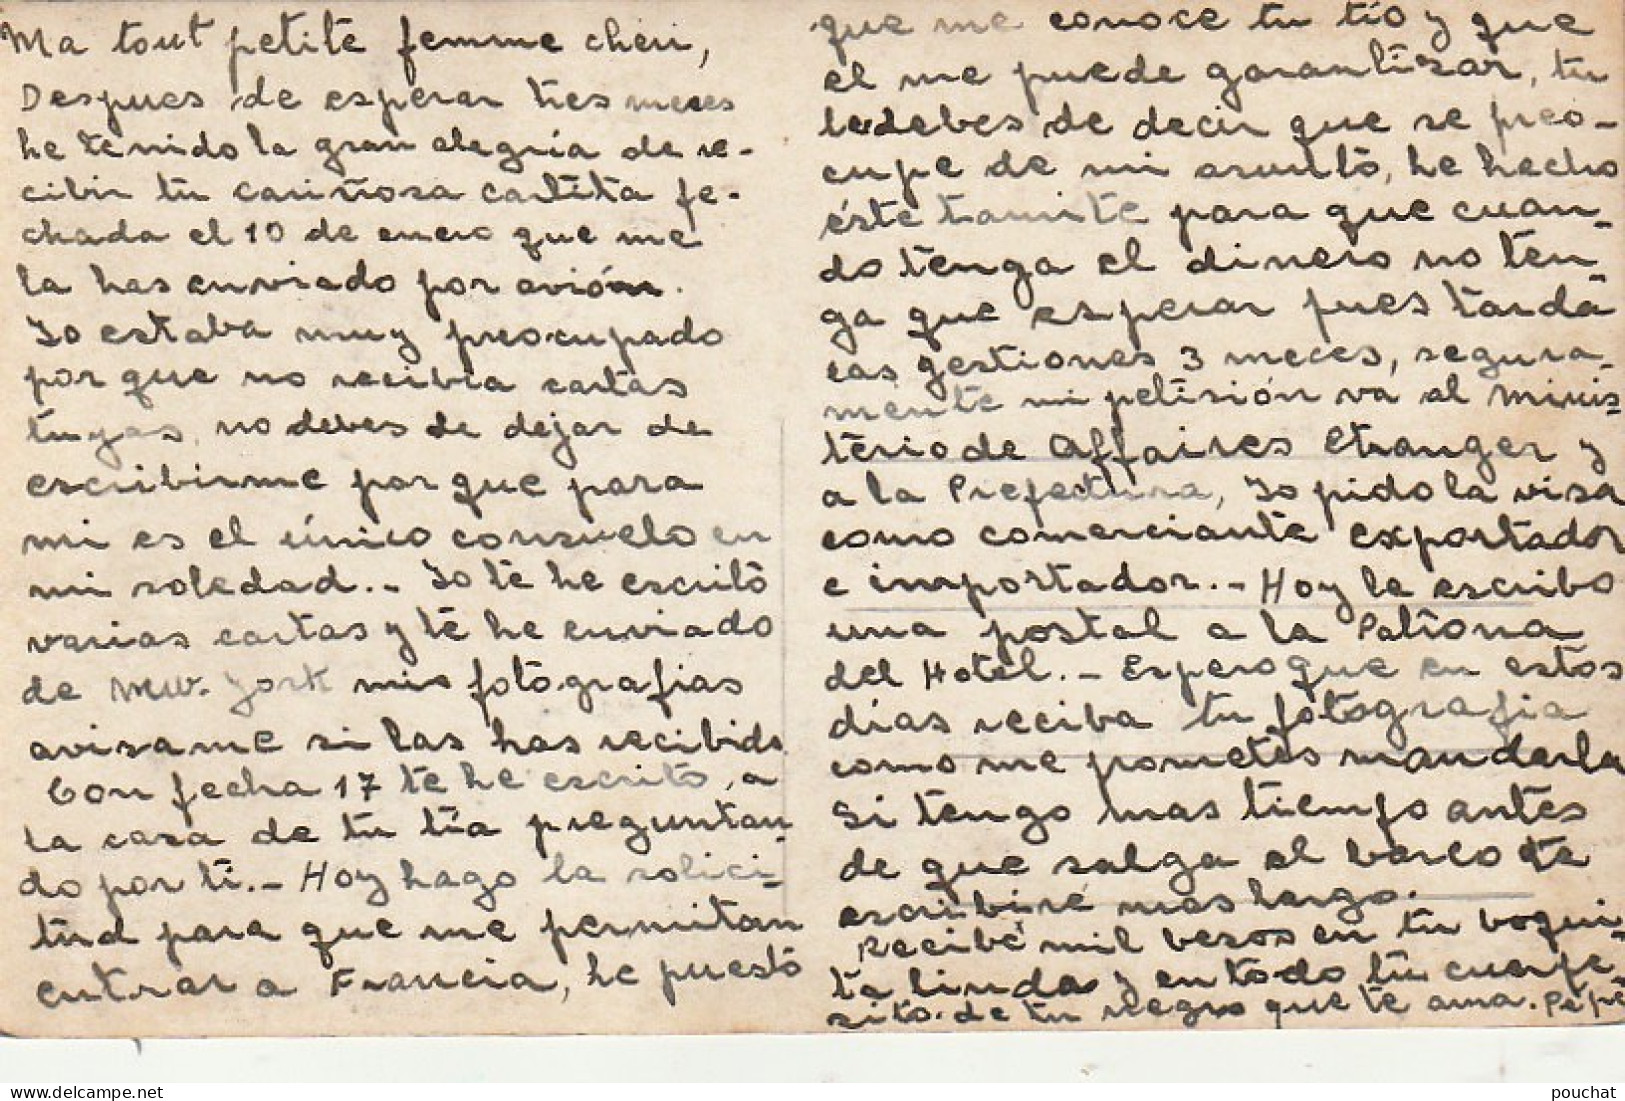 Ma tout petite femme cheri,
Despues de esperar tres meses
he tenido la gran alegria de re-
cibir tu cariñosa cartita fe-
chada el 10 de enero que me
la has enviado por avión.
Yo estaba muy preocupado
por que no recibia cartas
tuyas, no debes de dejar de
escribirme por que para
mi es el único consuelo en
mi soledad.- Yo te he escritó
varias cartas y te he enviado
de New. York mis fotografias
avisame si las has recibido
Con fecha 17 te he escrito, a
la casa de tu tia preguntan
do por ti.- Hoy hago la solici-
tud para que me permitan
entrar a Francia, he puestó
que me conoce tu tio y que
el me puede garantizar, tu
le debes de decir que se preo-
cupe de mi asuntó, he hecho
éste tramite para que cuan-
do tenga el dinero no ten-
ga que esperar pues tarda
ras gestiones 3 meces, segura-
mente mi petisión va al Minis-
tério de Affaires Etranger y
a la Prefectura, Yo pido la visa
como comerciante exportador
e importador.- Hoy le escribo
una postal a la Patrona
del Hotel.- Espero que en estos
dias reciba tu fotografia
como me prometes manderla
Si tengo mas tiempo antes
de que salga el barco te
escribiré mas largo.
Recibe mil besos en tu boqui-
ta linda y en todo tu cuerpe
sito. de tu negro que te ama. Pepe
pouchat